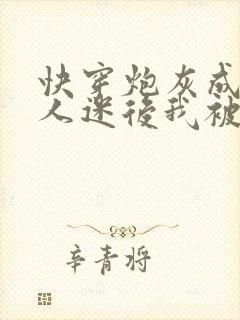 快穿炮灰成
人迷後我被
辛青将